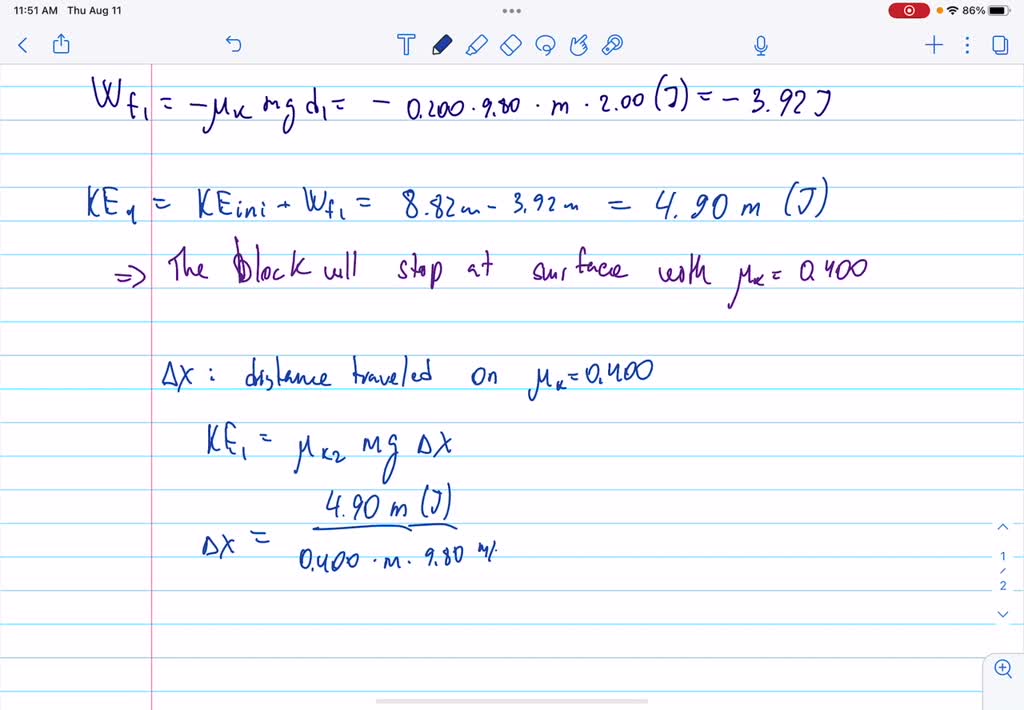 11:51 AM Thu Aug 11
86%
W_{f1} = -μ_k m g d_1 = - 0.200 · 9.80 · m · 2.00 (J) = - 3.92 J
KE_1 = KE_{ini} + W_{f1} = 8.82m - 3.92m = 4.90 m (J)
⇒ The block will stop at surface with μ_k = 0.400
Δx : distance traveled on μ_k = 0.400
KE_1 = μ_{k2} m g Δx
4.90 m (J)
Δx =
0.400 · m · 9.80 m/
1
/
2